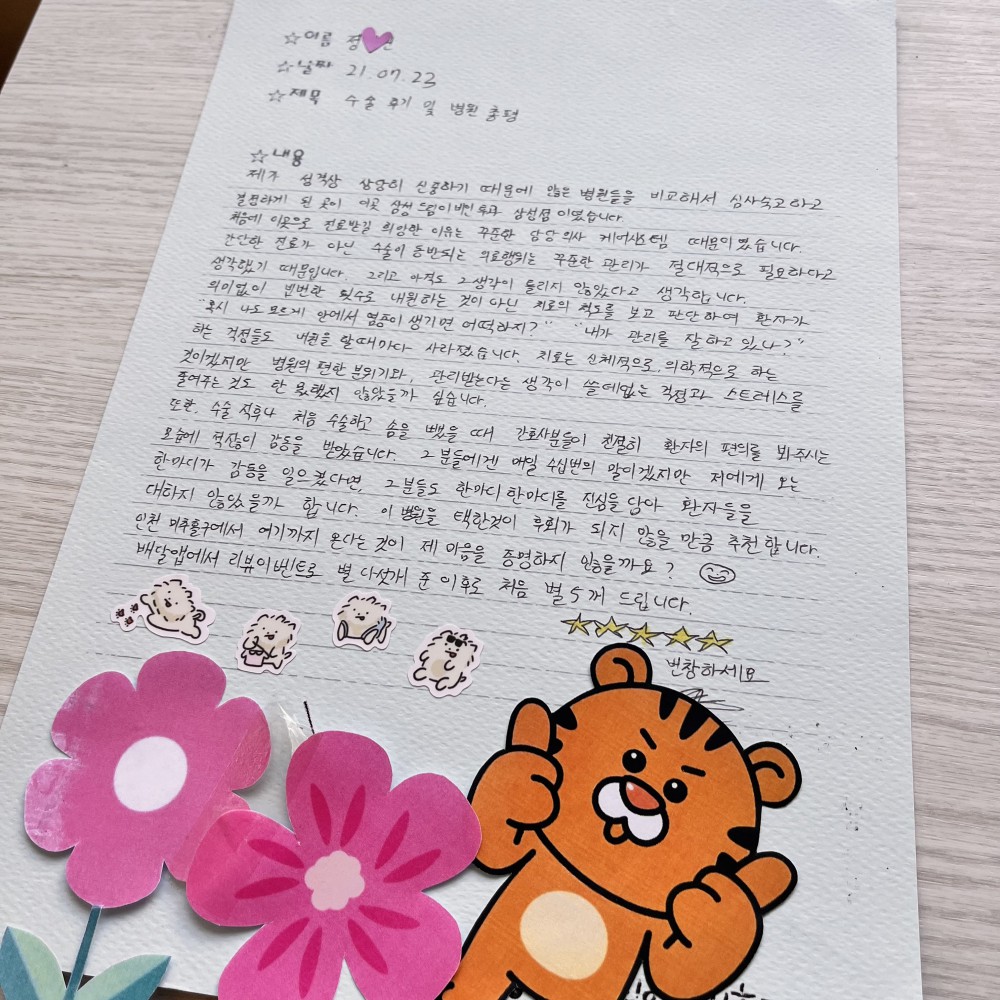 ☆이름 정
☆날짜 21.07.23
☆제목 수술 후기 및 병원 총평
☆내용
제가 성격상 상당히 신중하기 때문에 많은 병원들을 비교해서 심사숙고하고
결정하게 된 곳이 이곳 삼성드림이비인후과 삼성점이었습니다.
처음에 이곳으로 진료받길 희망한 이유는 꾸준한 담당의사 케어시스템 때문이였습니다.
간단한 진료가 아닌 수술이 동반되는 의료행위는 꾸준한 관리가 절대적으로 필요하다고
생각했기 때문입니다. 그리고 아직도 그 생각이 틀리지 않았다고 생각합니다.
의미없이 빈번한 횟수로 내원하는 것이 아닌 치료의 척도를 보고 판단하여 환자가
"혹시 나도 모르게 안에서 염증이 생기면 어떡하지?" "내가 관리를 잘 하고 있나?"
하는 걱정들도 내원을 할때마다 사라졌습니다. 치료는 신체적으로, 의학적으로 하는
것이겠지만 병원의 편한 분위기와, 관리받는다는 생각이 쓸데없는 걱정과 스트레스를
줄여주는 것도 한 몫했지 않았을까 싶습니다.
또한, 수술 직후나 처음 수술하고 솜을 뺐을 때 간호사분들이 친절히 환자의 편의를 봐주시는
모습에 적잖이 감동을 받았습니다. 그분들에겐 매일 수십번의 말이겠지만 저에게 오는
한마디가 감동을 일으켰다면, 그분들도 한마디한마디를 진심을 담아 환자들을
대하지 않았을까 합니다. 이 병원을 택한것이 후회가 되지 않을 만큼 추천합니다.
인천 미추홀구에서 여기까지 온다는 것이 제 마음을 증명하지 않을까요?
배달앱에서 리뷰이벤트로 별 다섯개 준 이후로 처음 별 5개 드립니다.
번창하세요